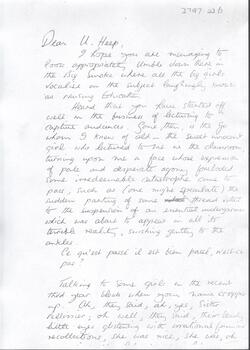 2797.22b
Dear U. Heep,
I hope you are managing to
look appropriately umble down there in
the Big Smoke where all the big girls
vocalise on the subject laughingly known
as nursing Education.
Heard that you have started off
well in the business of lecturing to a
captive audience. Gone then, is the Jo
whom I knew of old - the sweet innocent
girl who lectured to me in the classroom,
turning upon me a face whose expression
of pale and desperate agony foreboded
some irredeemable catastrophe come to
pass, such as (one might speculate) the
sudden parting of some thread vital
to the suspension of an essential undergarment
which was about to appear in all its
terrible reality, swishing gently to the
ankles.
Ce qu'est passé il est bien passé, n'est-ce
pas?
Talking to some girls in the recent
third year block when your name cropped
up. Oh, they said, ah, yes, Sister
well, they said, their beady
little eyes glistening with irrational
recollections, she was nice, she was, oh